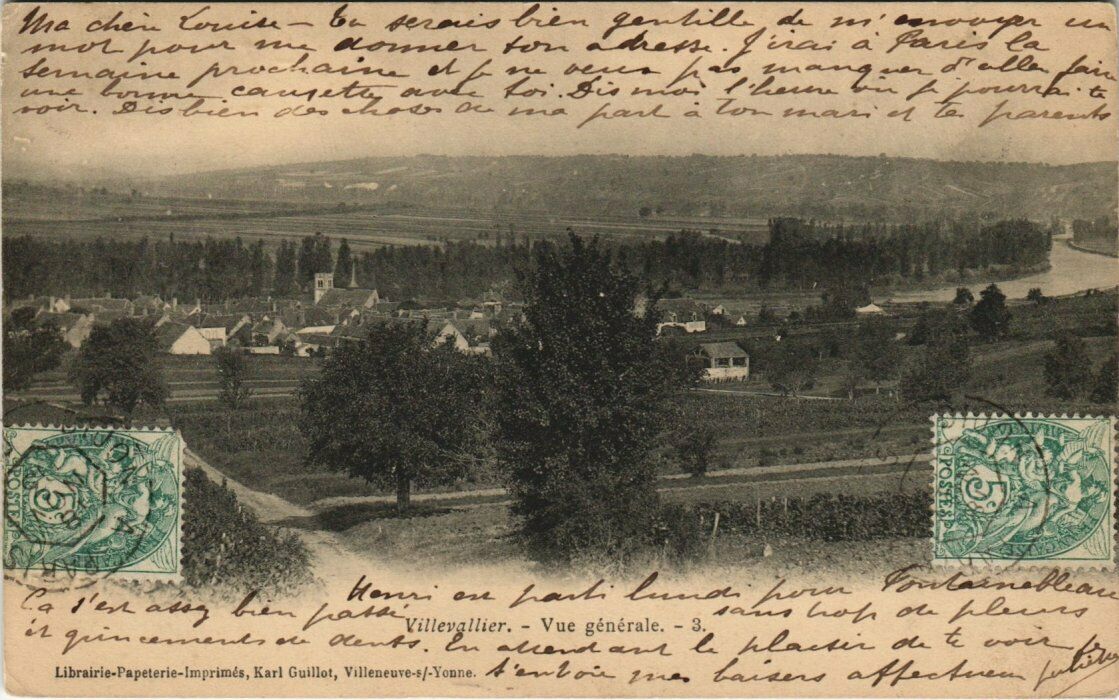 Ma chère Louise – Tu serais bien gentille de m'envoyer un
mot pour me donner ton adresse. J'irai à Paris la
semaine prochaine et je ne veux pas manquer d'aller faire
une bonne causette avec toi. Dis moi l'heure où je pourrai te
voir. Dis bien des choses de ma part à ton mari et tes parents
POSTES
5
POSTES
5
Henri est parti lundi pour Fontainebleau
Ça s'est assez bien passé sans trop de pleurs
Villevallier. - Vue générale. - 3.
et grincements de dents. En attendant le plaisir de te voir je
Librairie-Papeterie-Imprimés, Karl Guillot, Villeneuve-s/-Yonne.
t'envoie mes baisers affectueux Juliette